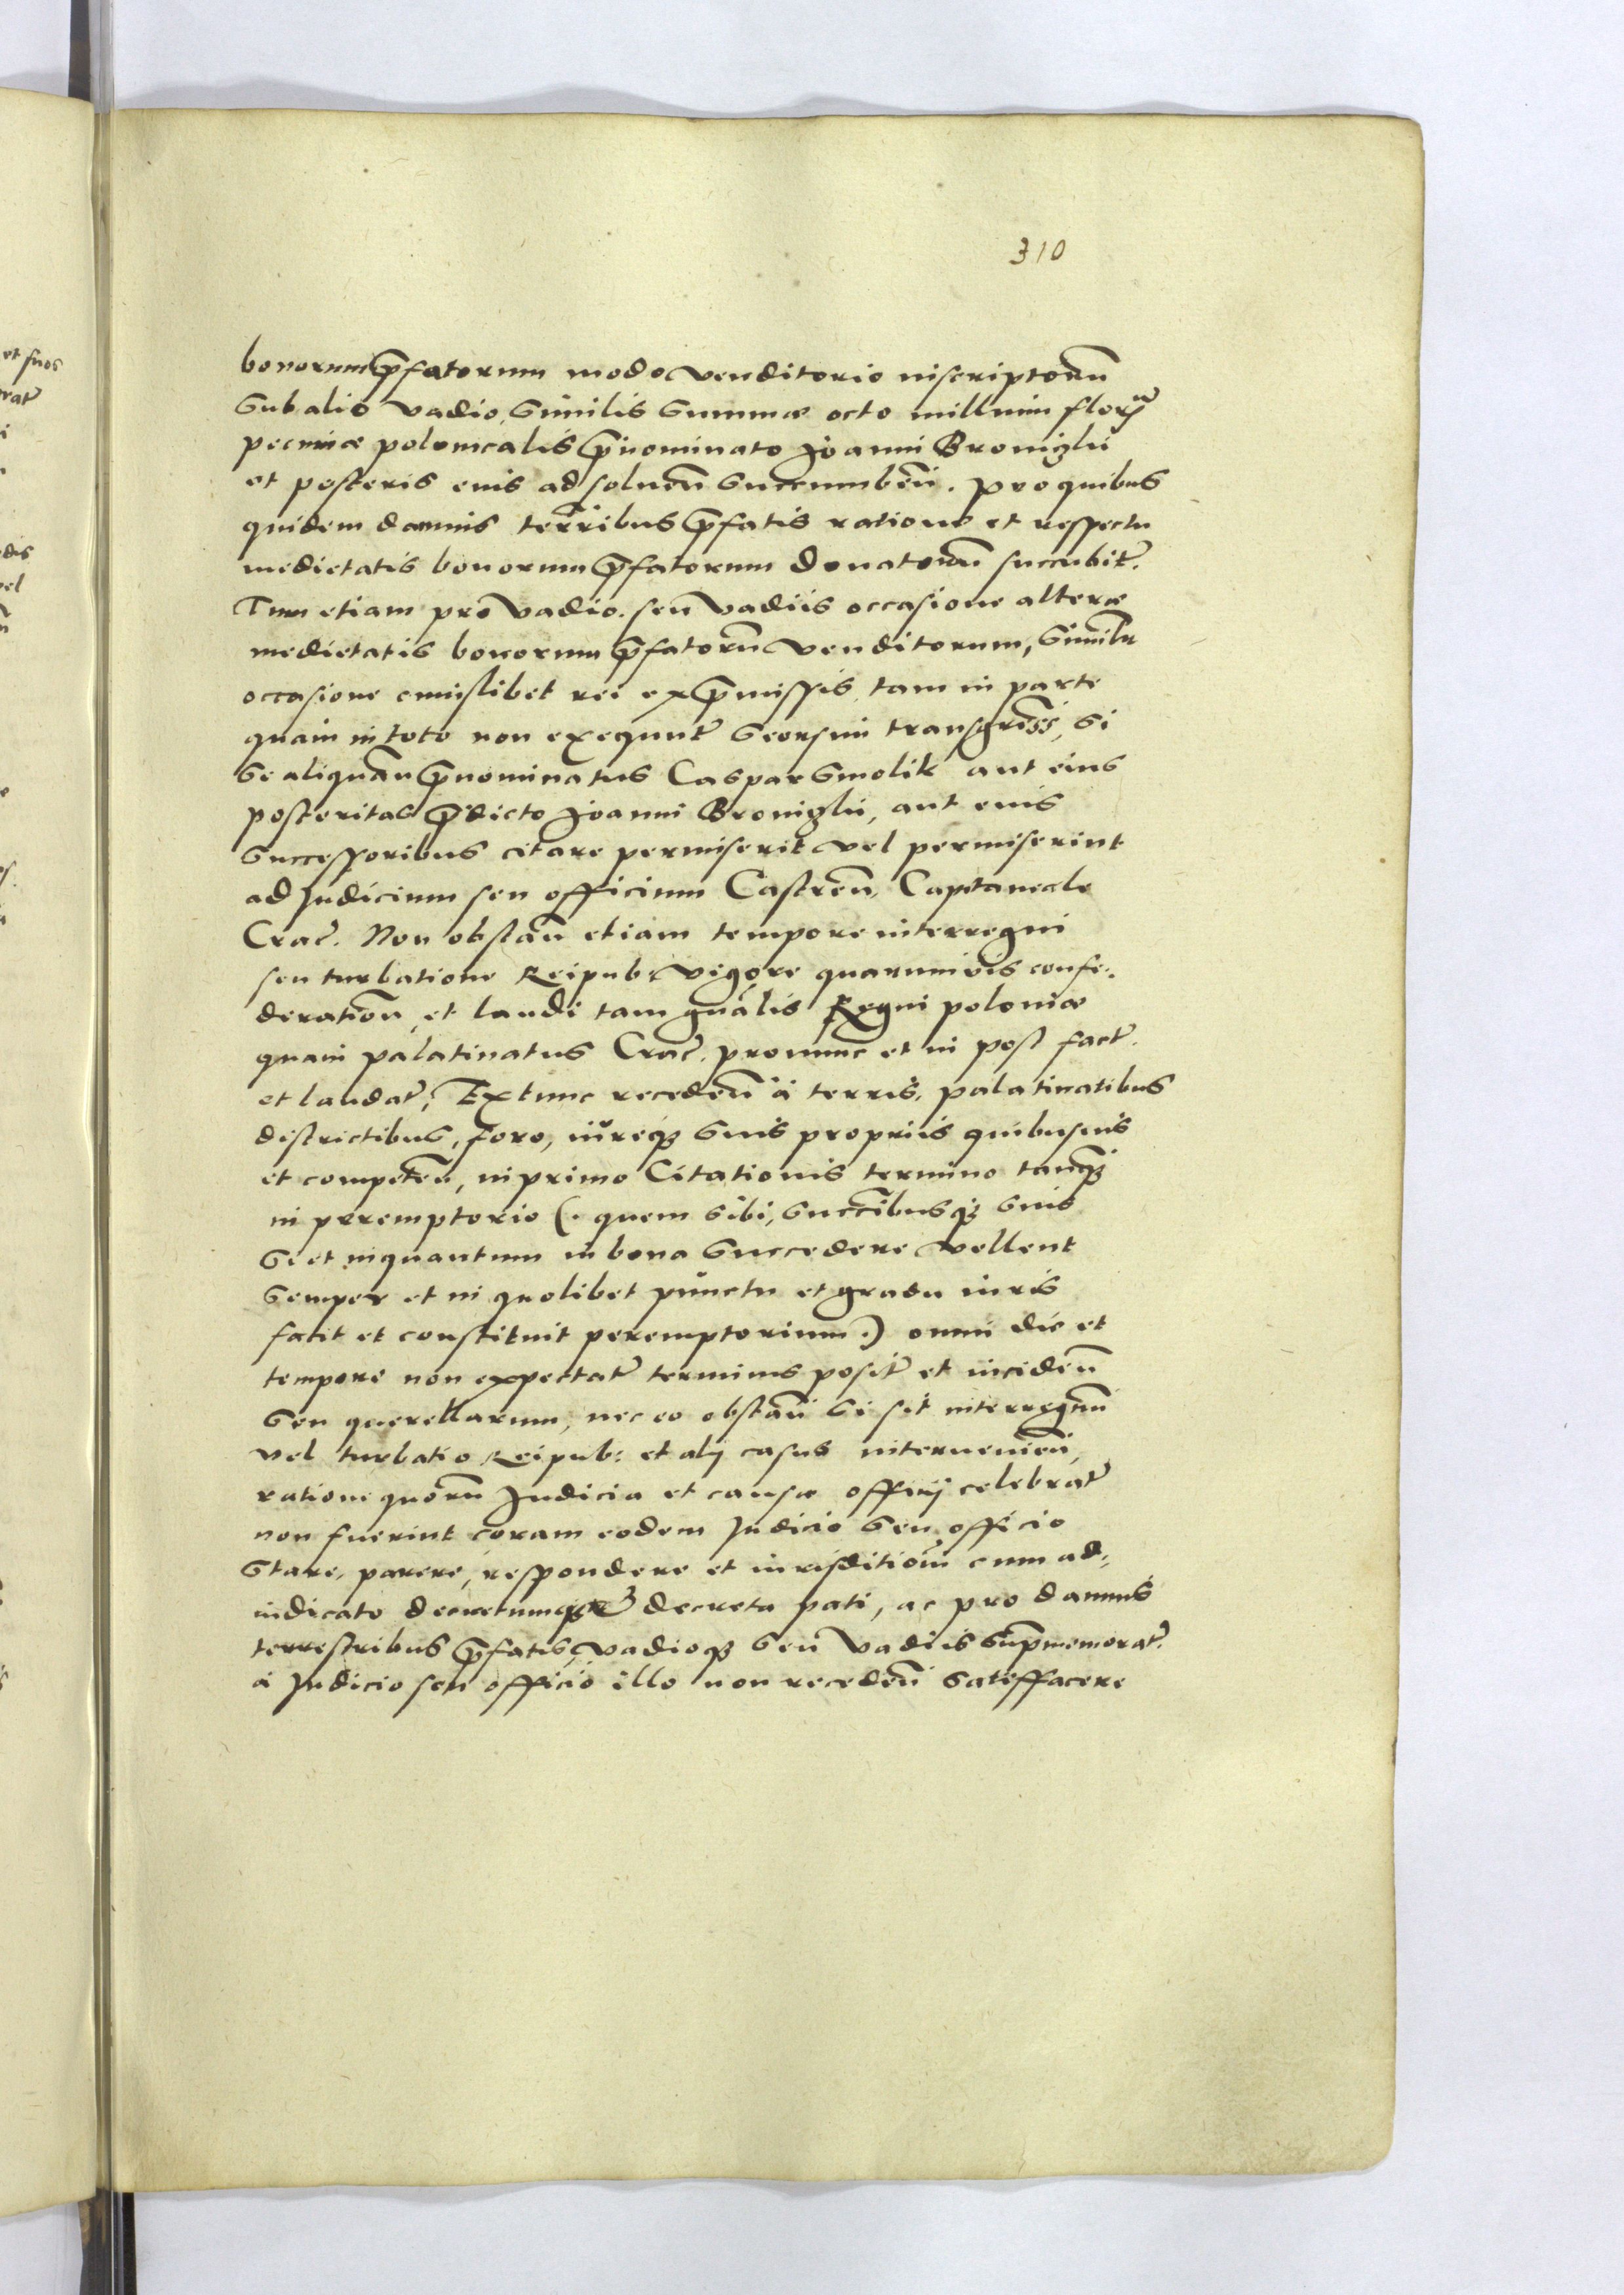 310
bonorum p̄fatorum modo venditorio inscriptorū
sub alio vadio similis summæ octo millium
pecuniæ polonicalis p̄nominato Joanni Broniglii
et posteris euis ad soluen̄ succumben̄. pro quibus
quidem damnis terr̄ibus p̄fatis ratione et respectu
medietatis bonorum p̄fatorum donatorū succubit̄.
Tum etiam pro vadio seu vadiis occasione alteræ
medietatis bonorum p̄fatorū venditorum,
occasione cuiuslibet rei ex p̄missis tam in parte
quam in toto non exequut̄ seorsim transgress̄, si
se aliquan̄ p̄nominatus Caspar Smolik aut eius
posteritas p̄dicto Joanni Broniglii, aut euis
successoribus citare permiserit vel permiserint
ad Judicium seu officium Castren̄, Capitaneale
Crac̄. Non obstan̄ etiam tempore interregni
seu turbatione Reipub: vigore quarumuis confe:
deration̄ et laudi tam gn̄alis Regni poloniæ
quam palatinatus Crac̄. pronunc et in post fact̄.
et laudat̄, Extunc receden̄ à terris, palatinatibus
districtibus, foro, iureq3 suis propriis quibusuis
et competen̄, in primo Citationis termino tanq̄3
in peremptorio (: quem sibi, succ̄ibusq3 suis
si et inquantum in bona succedere vellent
semper et in quolibet punctu et gradu iuris
facit et constituit peremptorium :) omni die et
tempore non expectat̄ terminis posit̄ et inciden̄
seu querellarum, nec eo obstan̄ si sit interregnum
vel turbatio Reipub: et alij casus interuenien̄,
ratione quorū Judicia et causæ officij celebrat̄
non fuerint coram eodem Judicio seu officio
stare, parere, respondere et iurisditiōni cum ad:
iudicato decretumq3 decreta pati, ac pro damnis
terrestribus p̄fatis, vadioq3 seu vadiis sup̄memorat̄.
à Judicio seu officio illo non receden̄ satisfacere